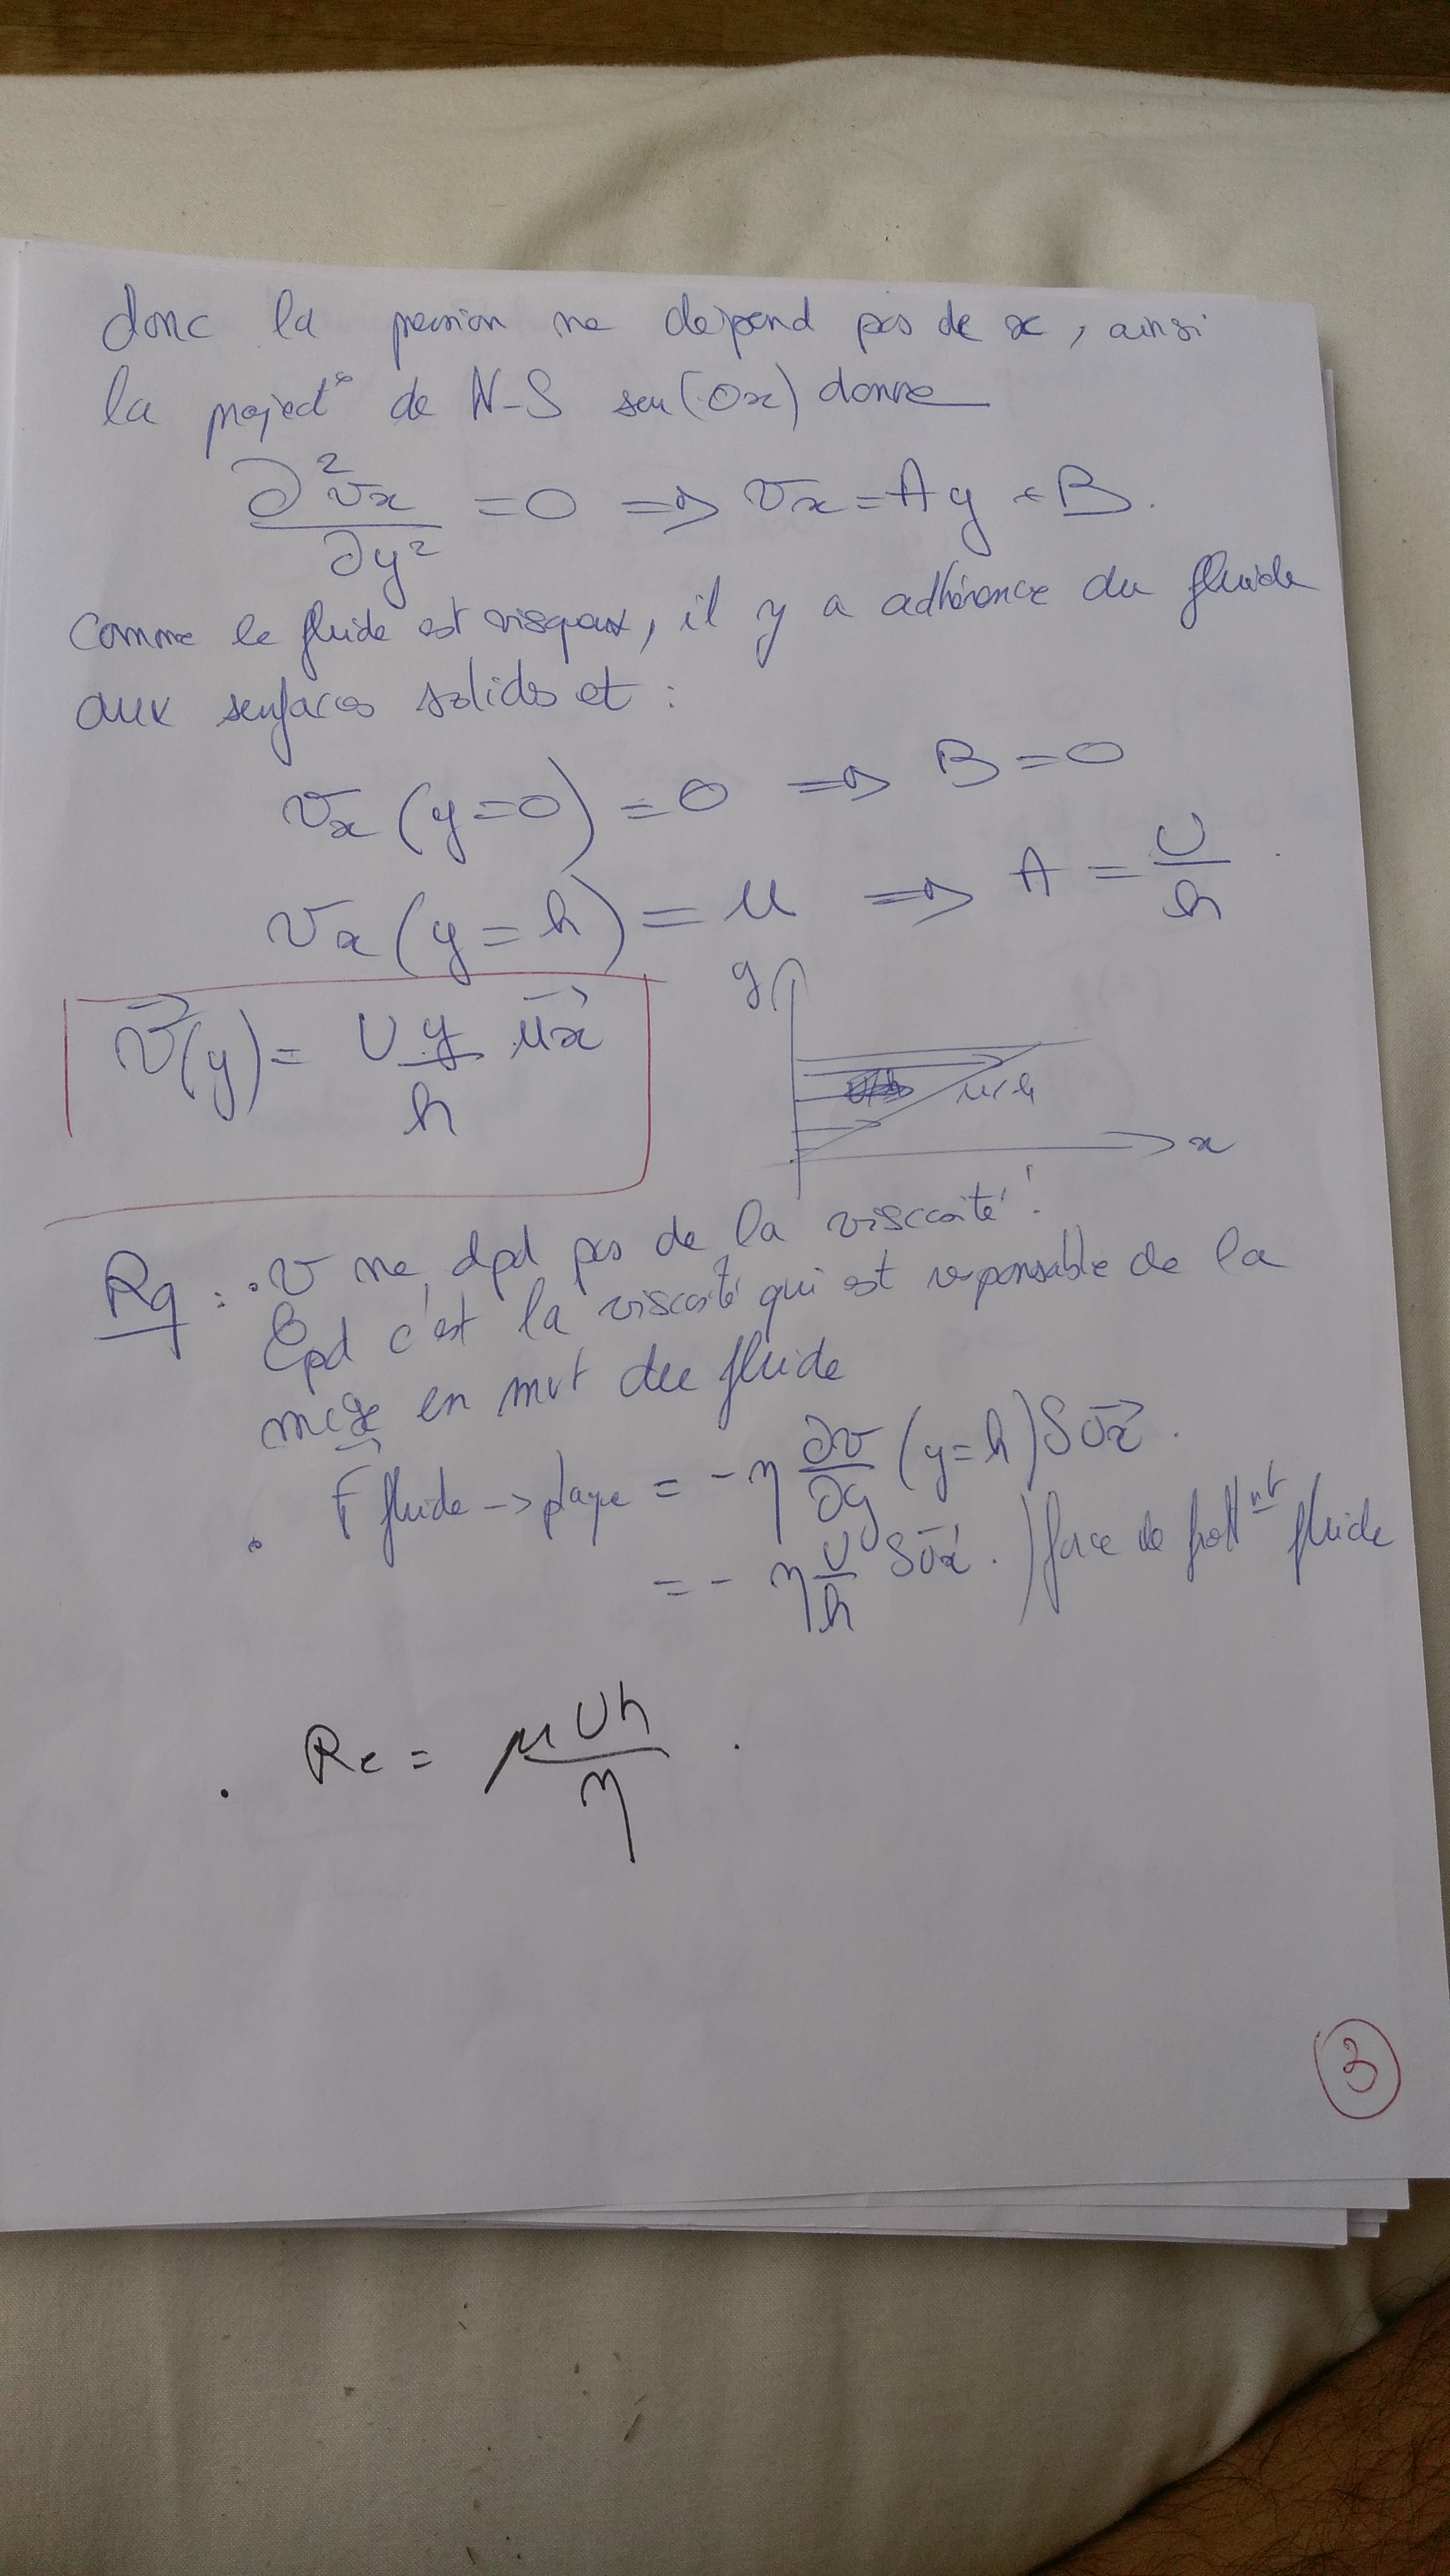 donc la pression ne dépend pas de x, ainsi
la project° de N-S sur (Ox) donne
∂²vx/∂y² = 0 => vx = Ay + B.
Comme le fluide est visqueux, il y a adhérence du fluide
aux surfaces solides et :
vx (y=0) = 0 => B = 0
vx (y=h) = u => A = U/h
v⃗(y) = U y/h u⃗x
y
u/h
x
Rq : · v ne dpd pas de la viscosité !
Cpd c'est la viscosité qui est responsable de la
mise en mvt du fluide
· F⃗ fluide -> plaque = -η ∂v/∂y (y=h) S u⃗x.
= - η U/h S u⃗x. ) force de frottnt fluide
· Re = μUh/η .
3